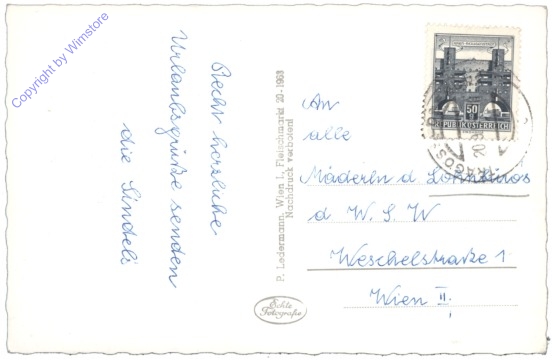 Copyright by Wimstore
Recht herzliche
Urlaubsgrüße senden
die Lindeli
P. Ledermann, Wien I., Fleischmarkt 20-1963
Nachdruck verboten!
Echte
Fotografie
50
REPUBLIK ÖSTERREICH
An
alle
Mäderln d
d W. S. W
Weschelstraße 1
Wien II.